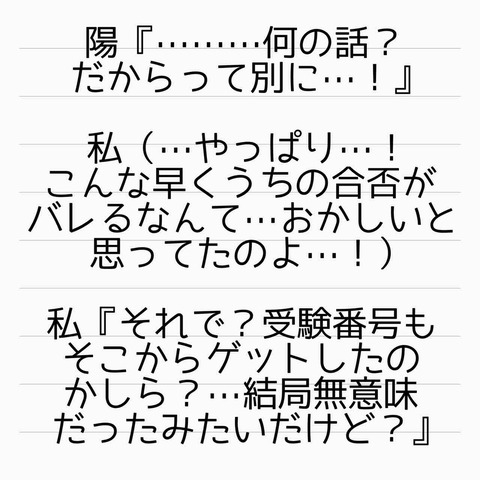 陽『………何の話？
だからって別に…！』
私（…やっぱり…！
こんな早くうちの合否が
バレるなんて…おかしいと
思ってたのよ…！）
私『それで？受験番号も
そこからゲットしたの
かしら？…結局無意味
だったみたいだけど？』